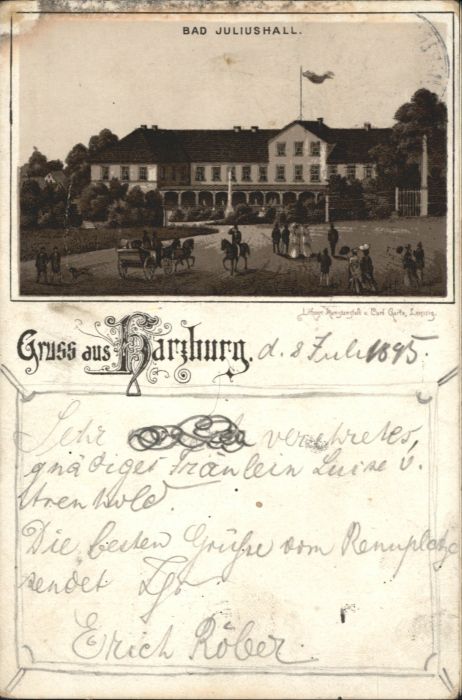 BAD JULIUSHALL.
Lithogr. Kunstanstalt v. Carl Garte, Leipzig.
Gruss aus Harzburg. d. 8 Juli 1895.
Sehr verehretes,
gnädiges Fräulein Luise v.
Strenhold.
Die besten Grüße vom Rennplatze
sendet Ihr
Erich Röber.